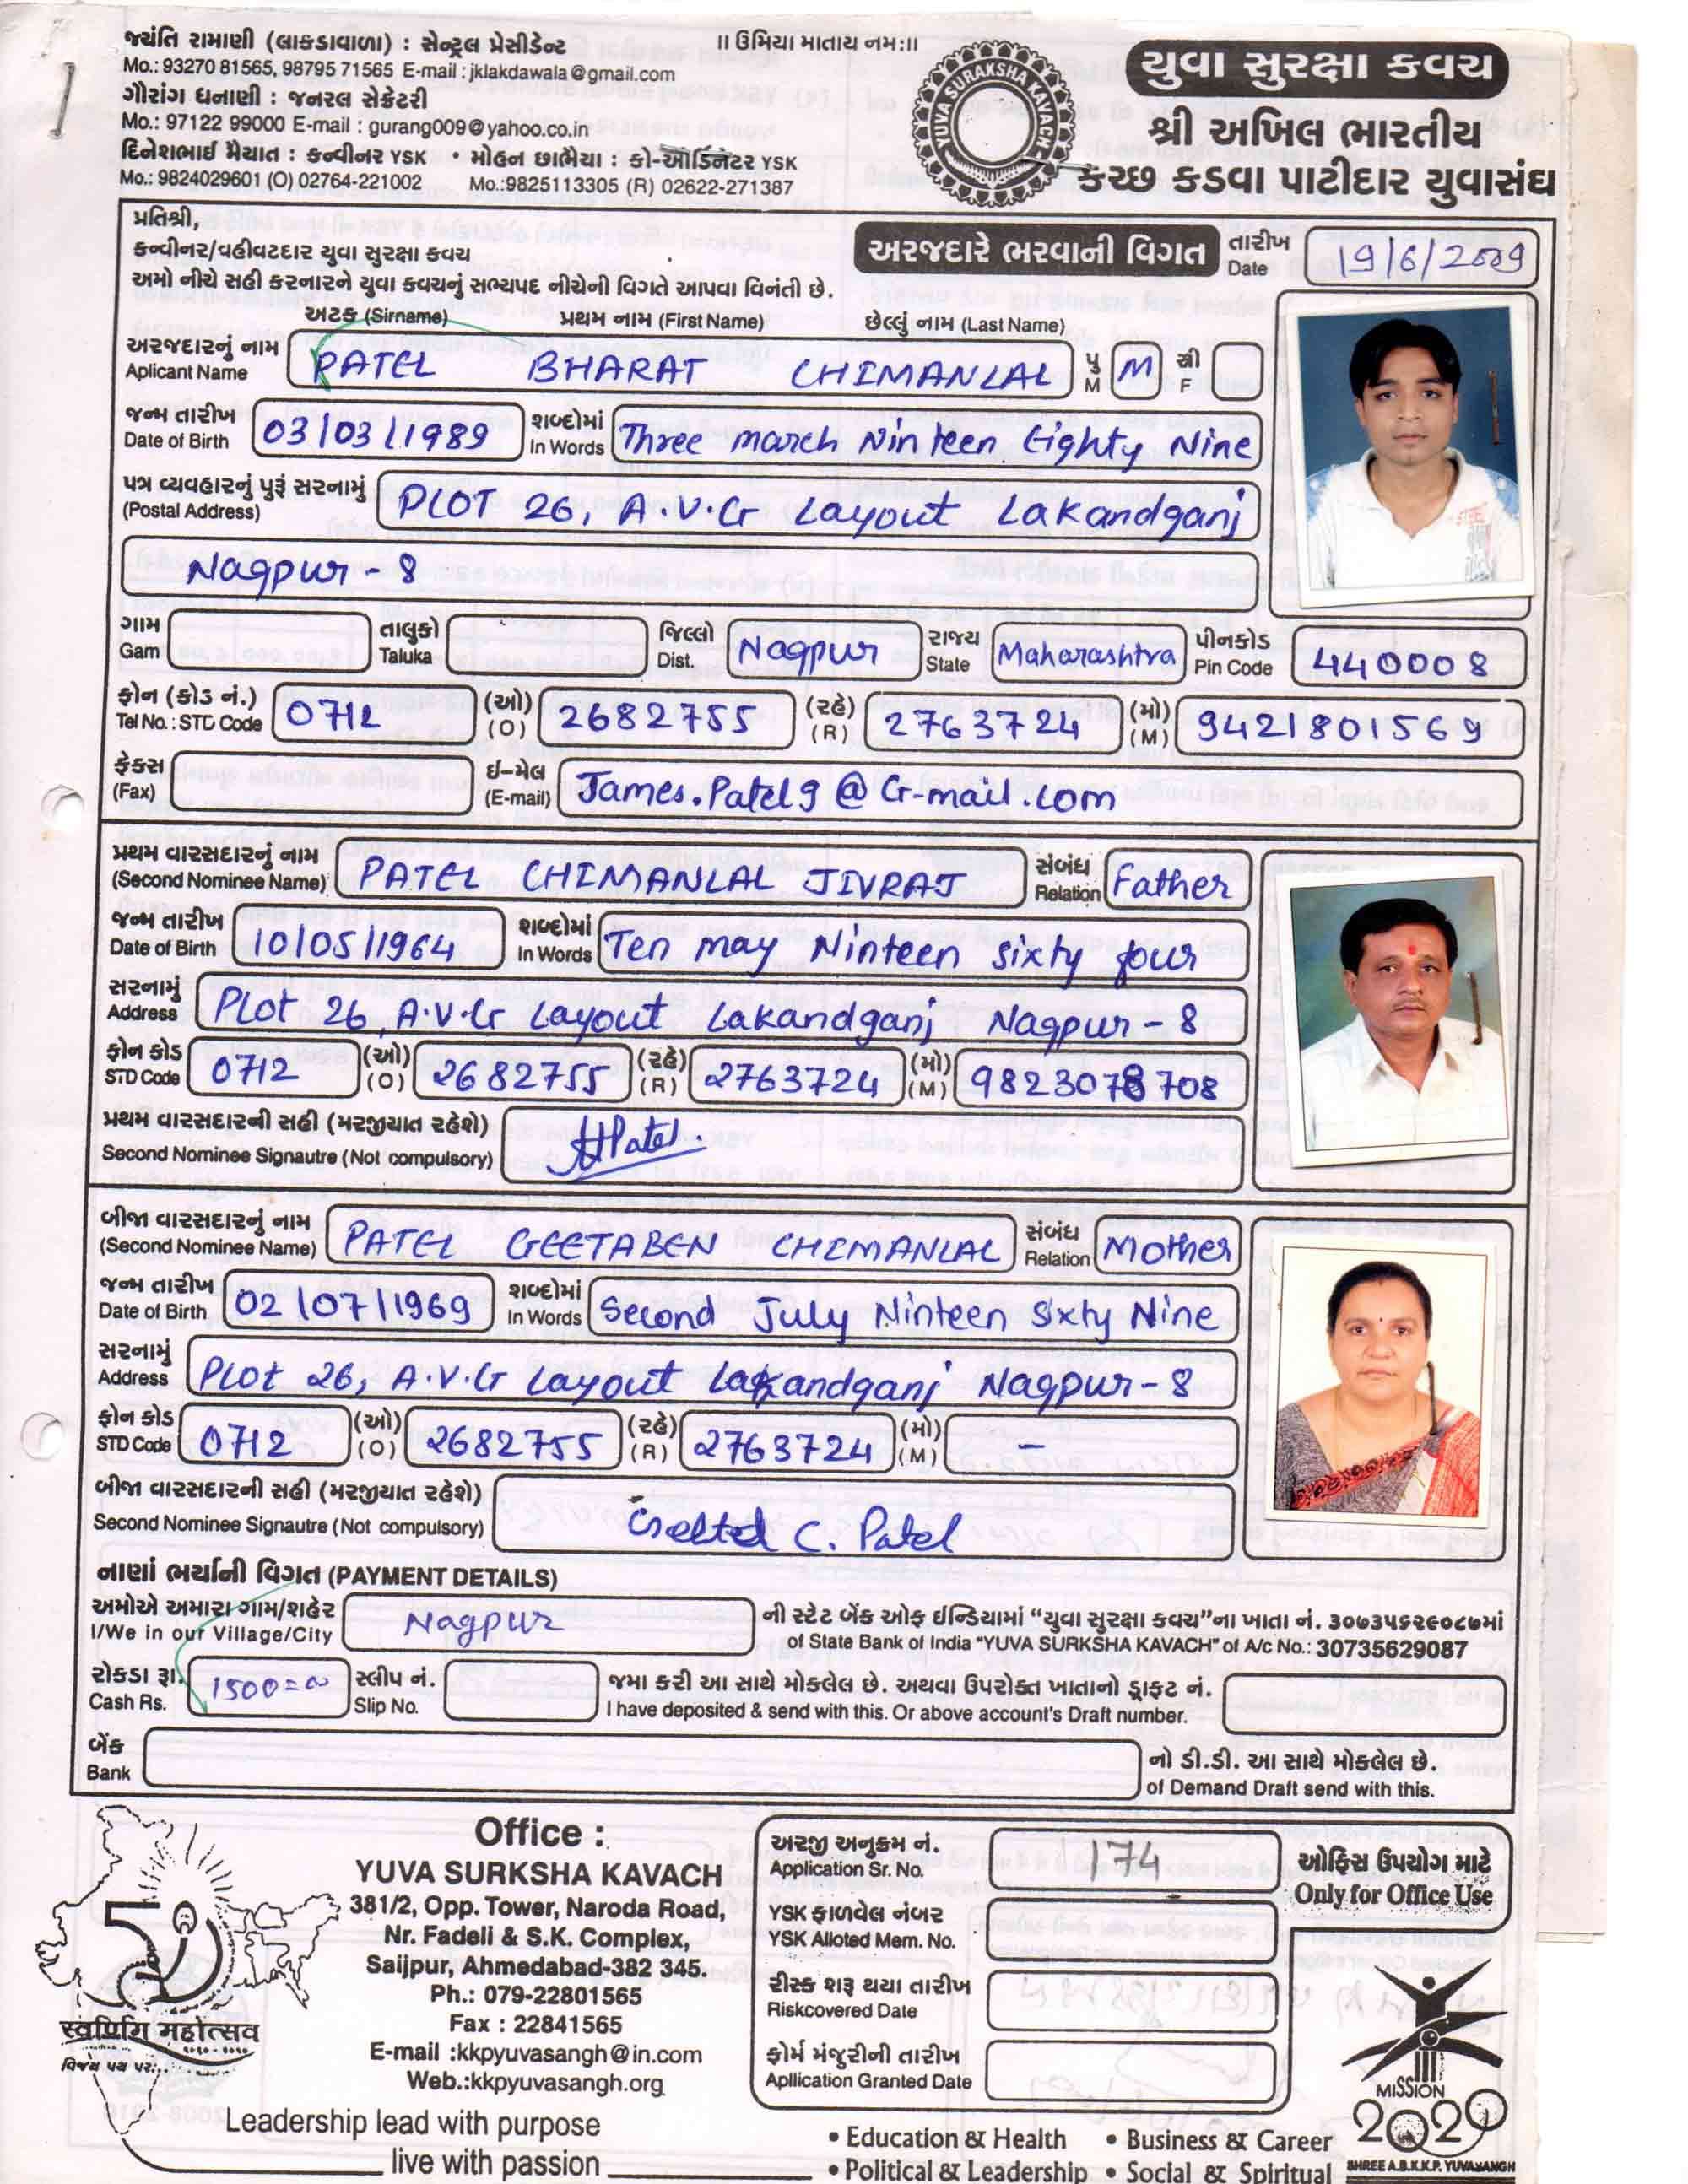 જયંતિ રામાણી (લાકડાવાળા) : સેન્ટ્રલ પ્રેસીડેન્ટ
Mo.: 93270 81565, 98795 71565 E-mail : jklakdawala@gmail.com
ગૌરાંગ ધનાણી : જનરલ સેક્રેટરી
Mo.: 97122 99000 E-mail : gurang009@yahoo.co.in
દિનેશભાઈ મૈયાત : કન્વીનર YSK • મોહન છાભૈયા : કો-ઓર્ડિનેટર YSK
Mo.: 9824029601 (O) 02764-221002 Mo.:9825113305 (R) 02622-271387
॥ ઉમિયા માતાય નમ:॥
YUVA SURAKSHA KAVACH
યુવા સુરક્ષા કવચ
શ્રી અખિલ ભારતીય
કચ્છ કડવા પાટીદાર યુવાસંઘ
પ્રતિશ્રી,
કન્વીનર/વહીવટદાર યુવા સુરક્ષા કવચ
અમો નીચે સહી કરનારને યુવા કવચનું સભ્યપદ નીચેની વિગતે આપવા વિનંતી છે.
અરજદારે ભરવાની વિગત તારીખ Date 19/6/2009
અટક (Sirname) પ્રથમ નામ (First Name) છેલ્લું નામ (Last Name)
અરજદારનું નામ Aplicant Name PATEL BHARAT CHIMANLAL પુ M M સ્રી F
જન્મ તારીખ Date of Birth 03/03/1989 શબ્દોમાં In Words Three march Ninteen Eighty Nine
પત્ર વ્યવહારનું પુરૂં સરનામું (Postal Address) PLOT 26, A.V.G Layout Lakandganj
Nagpur - 8
ગામ Gam તાલુકો Taluka જિલ્લો Dist. Nagpur રાજ્ય State Maharashtra પીનકોડ Pin Code 440008
ફોન (કોડ નં.) Tel No. : STD Code 0712 (ઓ) (O) 2682755 (રહે) (R) 2763724 (મો) (M) 9421801569
ફેક્સ (Fax) ઈ-મેલ (E-mail) James.Patel9@G-mail.com
પ્રથમ વારસદારનું નામ (Second Nominee Name) PATEL CHIMANLAL JIVRAJ સંબંધ Relation Father
જન્મ તારીખ Date of Birth 10/05/1964 શબ્દોમાં In Words Ten may Ninteen sixty four
સરનામું Address Plot 26, A.V.G Layout Lakandganj Nagpur - 8
ફોન કોડ STD Code 0712 (ઓ) (O) 2682755 (રહે) (R) 2763724 (મો) (M) 9823078708
પ્રથમ વારસદારની સહી (મરજીયાત રહેશે)
Second Nominee Signautre (Not compulsory) Patel
બીજા વારસદારનું નામ (Second Nominee Name) PATEL GEETABEN CHIMANLAL સંબંધ Relation Mother
જન્મ તારીખ Date of Birth 02/07/1969 શબ્દોમાં In Words Second July Ninteen Sixty Nine
સરનામું Address Plot 26, A.V.G Layout Lakandganj Nagpur - 8
ફોન કોડ STD Code 0712 (ઓ) (O) 2682755 (રહે) (R) 2763724 (મો) (M) -
બીજા વારસદારની સહી (મરજીયાત રહેશે)
Second Nominee Signautre (Not compulsory) C. Patel
નાણાં ભર્યાની વિગત (PAYMENT DETAILS)
અમોએ અમારા ગામ/શહેર Nagpur ની સ્ટેટ બેંક ઓફ ઈન્ડિયામાં “યુવા સુરક્ષા કવચ”ના ખાતા નં. ૩૦૭૩૫૬૨૯૦૮૭માં
I/We in our Village/City of State Bank of India "YUVA SURKSHA KAVACH" of A/c No.: 30735629087
રોકડા રૂા. 1500=00 સ્લીપ નં. જમા કરી આ સાથે મોકલેલ છે. અથવા ઉપરોક્ત ખાતાનો ડ્રાફ્ટ નં.
Cash Rs. Slip No. I have deposited & send with this. Or above account's Draft number.
બેંક નો ડી.ડી. આ સાથે મોકલેલ છે.
Bank of Demand Draft send with this.
Office :
YUVA SURKSHA KAVACH
381/2, Opp. Tower, Naroda Road,
Nr. Fadeli & S.K. Complex,
Saijpur, Ahmedabad-382 345.
Ph.: 079-22801565
Fax : 22841565
E-mail :kkpyuvasangh@in.com
Web.:kkpyuvasangh.org
स्वर्णिम महोत्सव
વિજય પથ પર...
Leadership lead with purpose
live with passion
અરજી અનુક્રમ નં. Application Sr. No. 174
ઓફિસ ઉપયોગ માટે
Only for Office Use
YSK ફાળવેલ નંબર
YSK Alloted Mem. No.
રીસ્ક શરૂ થયા તારીખ
Riskcovered Date
ફોર્મ મંજુરીની તારીખ
Apllication Granted Date
• Education & Health • Business & Career
• Political & Leadership • Social & Spiritual
MISSION
2020
SHREE A.B.K.K.P. YUVASANGH